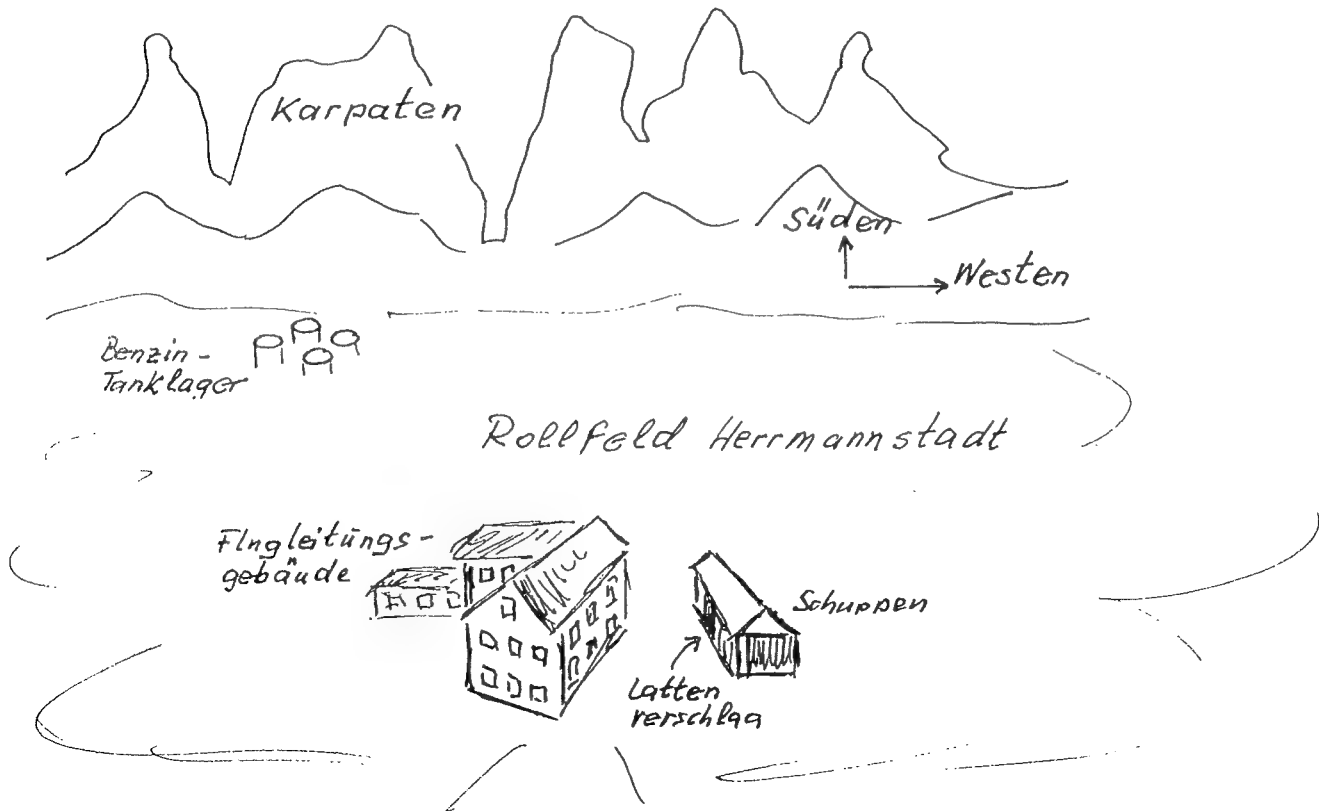 Karpaten
Süden
Westen
Benzin-
Tanklager
Rollfeld Herrmannstadt
Flugleitungs-
gebäude
Schuppen
Latten
verschlag